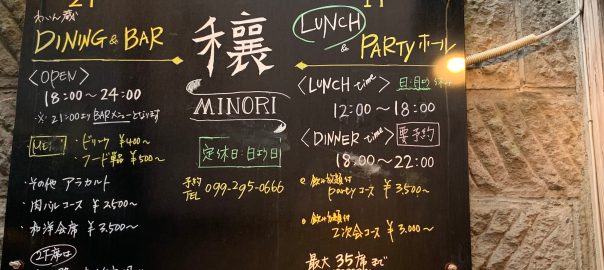 2F
わいん蔵
DINING & BAR
<OPEN>
18:00〜24:00
※ 21:00より BARメニューとなります
ドリンク ¥400〜
フード単品 ¥500〜
・その他 アラカルト
・肉バルコース ¥2,500〜
・和洋会席 ¥3,500〜
2F席は
穣
MINORI
定休日:日・月・祝日
予約
TEL 099-295-0666
1F
LUNCH
& PARTYホール
<LUNCH time>
12:00〜18:00
<DINNER time> 要予約
18:00〜22:00
飲み放題付
partyコース ¥3,500〜
飲み放題付
2次会コース ¥3,000〜
最大 35席まで